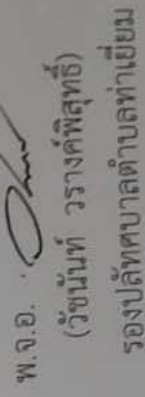 พ.จ.อ.
(วัชนันท์ วรางค์พิสุทธิ์)
รองปลัดเทศบาลตำบลท่าเยี่ยม